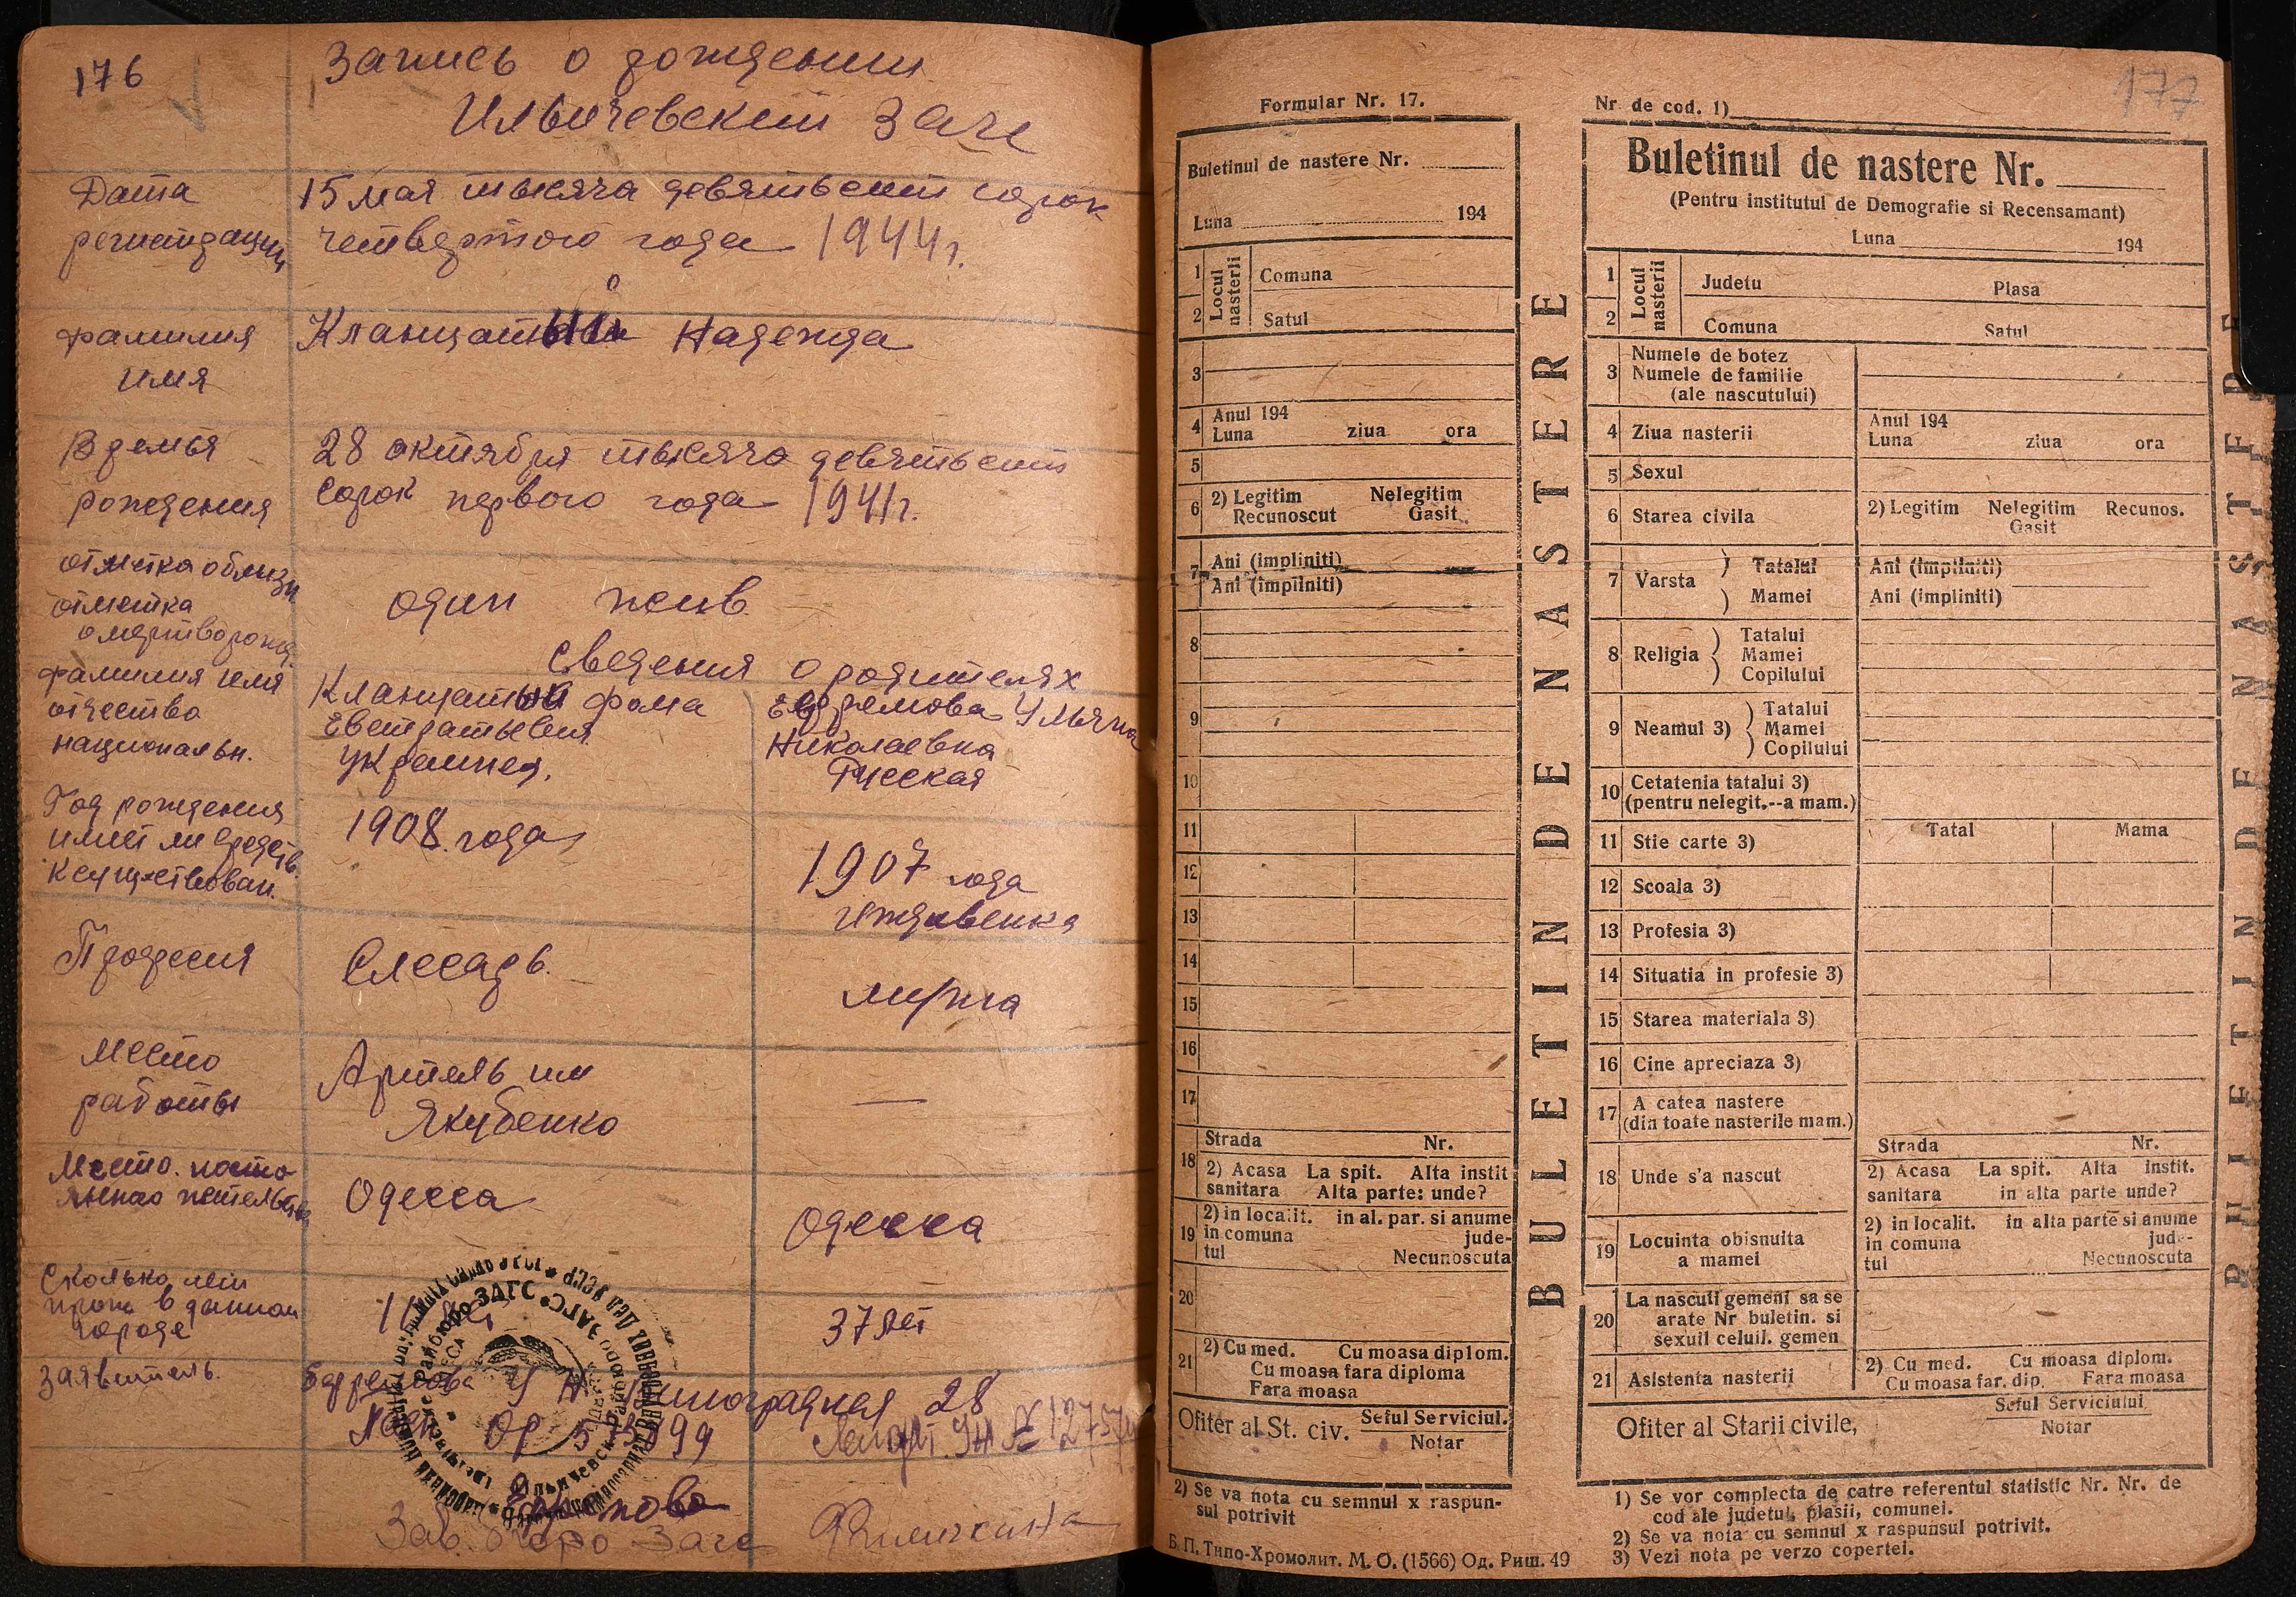 176
Запись о рождении
Ильичевский Загс
Дата регистрации
15 мая тысяча девятьсот сорок
четвертого года 1944 г.
фамилия имя
Надежда
Время рождения
28 октября тысяча девятьсот
сорок первого года 1941 г.
отметка о близн
отметка
о мертворожд.
один жив
Сведения о родителях
фамилия имя
отчество
национальн.
Фома
Евстратьевич
Украинец.
Ефремова Ульяна
Николаевна
Русская
Год рождения
имеет ли средств.
к существован.
1908 года
1907 года
иждивенка
Професия
Слесарь.
Место
работы
Артель им
Якубенко
—
Место посто
янного жительства
Одесса
Одесса
Сколько лет
прож в данном
городе
37 лет
Заявитель.
Ефремова У Н Виноградная 28
Ефремова
Зав. бюро Загс
177
Formular Nr. 17.
Buletinul de nastere Nr.
Luna 194
1 2 Locul nasterii
Comuna
Satul
3
4 Anul 194
Luna ziua ora
5
6 2) Legitim Nelegitim
Recunoscut Gasit
7 Ani (impliniti)
Ani (impliniti)
8
9
10
11
12
13
14
15
16
17
18 Strada Nr.
2) Acasa La spit. Alta instit
sanitara Alta parte: unde?
19 2) in localit. in al. par. si anume
in comuna jude-
tul Necunoscuta
20
21 2) Cu med. Cu moasa diplom.
Cu moasa fara diploma
Fara moasa
Ofiter al St. civ. Seful Serviciul.
Notar
2) Se va nota cu semnul x raspun-
sul potrivit
Б.П. Типо-Хромолит. М. О. (1566) Од. Риш. 49
BULETIN DE NASTERE
Nr de cod. 1)
Buletinul de nastere Nr.
(Pentru institutul de Demografie si Recensamant)
Luna 194
1 2 Locul nasterii
Judetu Plasa
Comuna Satul
3 Numele de botez
Numele de familie
(ale nascutului)
4 Ziua nasterii
Anul 194
Luna ziua ora
5 Sexul
6 Starea civila
2) Legitim Nelegitim Recunos.
Gasit
7 Varsta Tatalui Ani (impliniti)
Mamei Ani (impliniti)
8 Religia Tatalui
Mamei
Copilului
9 Neamul 3) Tatalui
Mamei
Copilului
10 Cetatenia tatalui 3)
(pentru nelegit.--a mam.)
Tatal Mama
11 Stie carte 3)
12 Scoala 3)
13 Profesia 3)
14 Situatia in profesie 3)
15 Starea materiala 3)
16 Cine apreciaza 3)
17 A catea nastere
(din toate nasterile mam.)
18 Unde s'a nascut
Strada Nr.
2) Acasa La spit. Alta Instit.
sanitara in alta parte unde?
19 Locuinta obisnuita
a mamei
2) in localit. in alta parte si anume
in comuna jud-
tul Necunoscuta
20 La nascuti gemeni sa se
arate Nr buletin. si
sexuil celuil. gemen
21 Asistenta nasterii
2) Cu med. Cu moasa diplom.
Cu moasa far. dip. Fara moasa
Ofiter al Starii civile,
Seful Serviciului
Notar
1) Se vor complecta de catre referentul statistic Nr. Nr. de
cod ale judetul, plasii, comunei.
2) Se va nota cu semnul x raspunsul potrivit.
3) Vezi nota pe verzo copertei.
BULETIN DE NASTERE